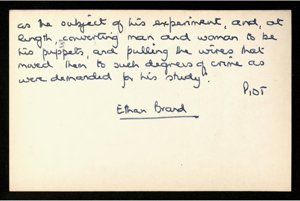 as the subject of his experiment, and, at
length, converting man and woman to be
his puppets, and pulling the wires that
moved them to such degrees of crime as
were demanded for his study".
PIOT
Ethan Brand